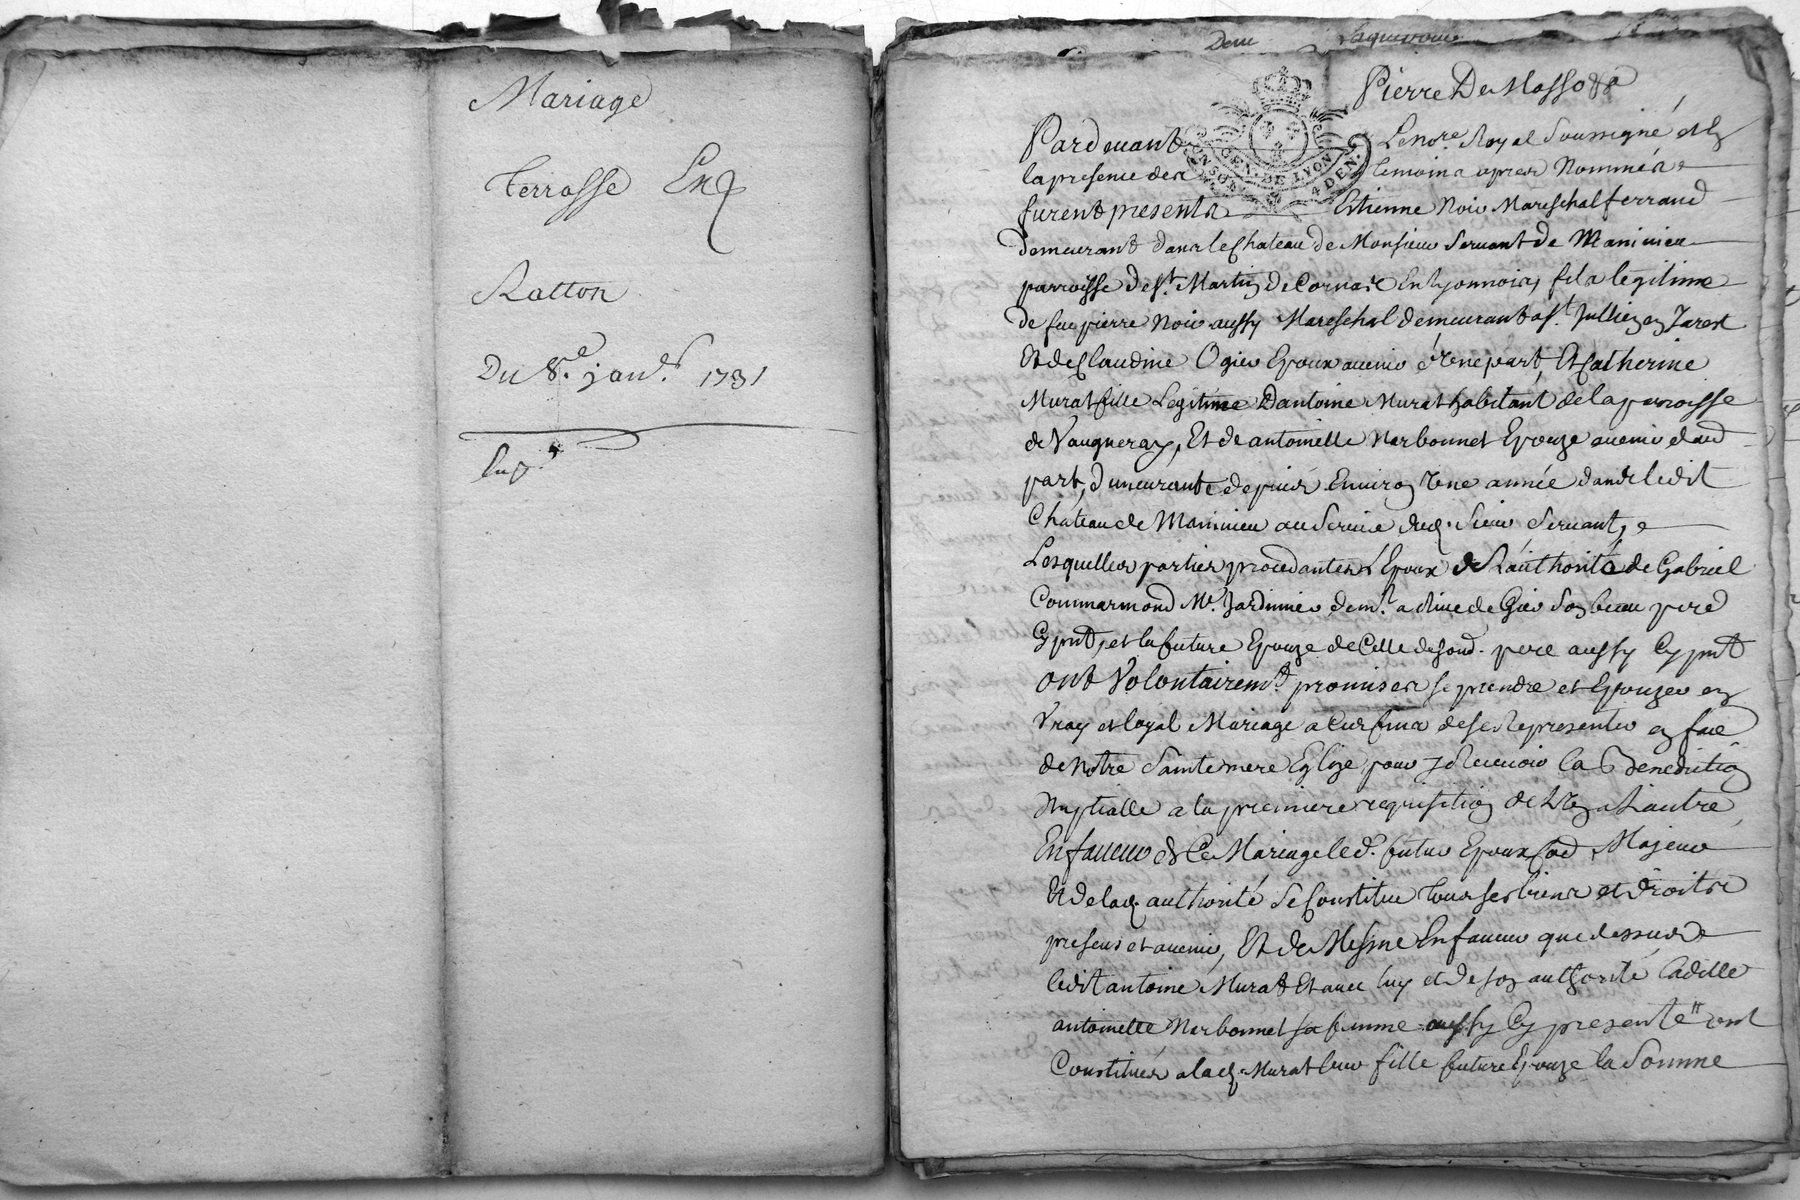 Mariage
Terrasse Et
Ratton
Du 8e. janr. 1731
Exp
Pierre De
Pardeuant Le nore. Royal Soussigné et En
la presence des temoins apres Nommés
furent presents Estienne Noir Mareschal ferrand
demeurant dans le Chateau de Monsieur Seruant de Maninieu
parroisse de St. Martin De Cornas En Lyonnois, fils legitime
de feu pierre Noir aussy Mareschal demeurant a St. Jullien en Jarest
Et de Claudine Ogier Epoux auenir d'Vne part, Et Catherine
Murat fille Legitime D'antoine Murat habitant de la parroisse
de Vaugneray, Et de antoinette Narbonnet Epouze auenir d'aud
part, demeurante depuis Enuiron Vne année dans ledit
Château de Maninieu au Seruice dud. Sieur Seruant,
Lesquelles parties procedantes L'Epoux de L'authorité de Gabriel
Commarmond Me. Jardinier demt. a Riue de Gier Son beau pere
Cy pnt, et la future Epouze de Celle de sond. pere aussy Cy pnt
ont Volontairemt. promis se prendre et Epouzer en
Vray et loyal Mariage a leur fins de se representer en face
de Notre Sainte mere Eglize pour y Receuoir la Benediction
Nuptialle a la premiere requisition de L'Vn a L'autre
En faueur de Ce Mariage le d. futur Epoux Majeur
Et de lad. authorité Se Constitue tous ses biens et droits
presens et auenir, Et de Mesme En faueur que dessus
ledit antoine Murat Et auec luy et de son authorité Ladite
antoinette Narbonnet sa femme aussy Cy presente ont
Constitués a lad. Murat leur fille future Epouze la Somme
GEN. DE LYON
4 DEN.